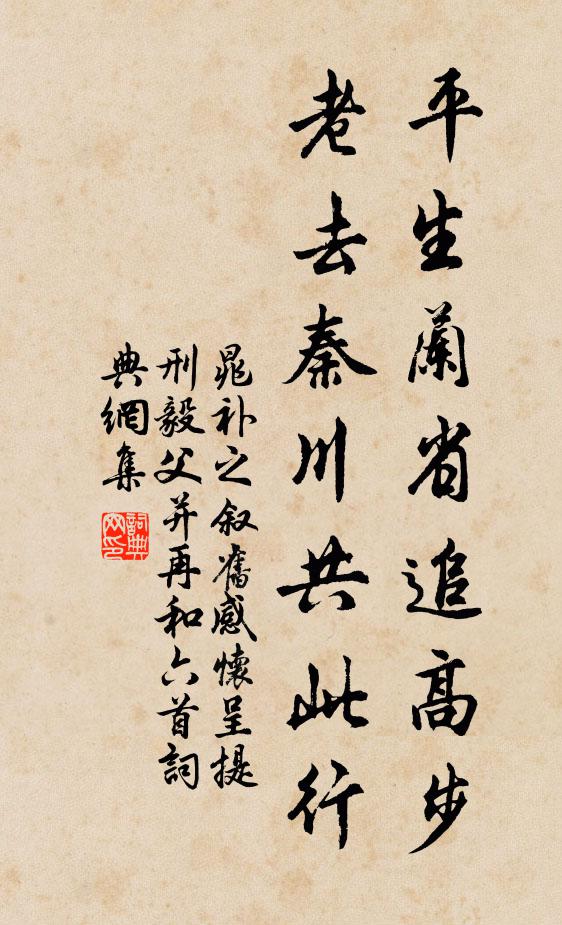 平生蘭省追高步
老去秦川共此行
晁补之叙舊感懷呈提
刑毅父并再和六首詞
典網集
詞典網印